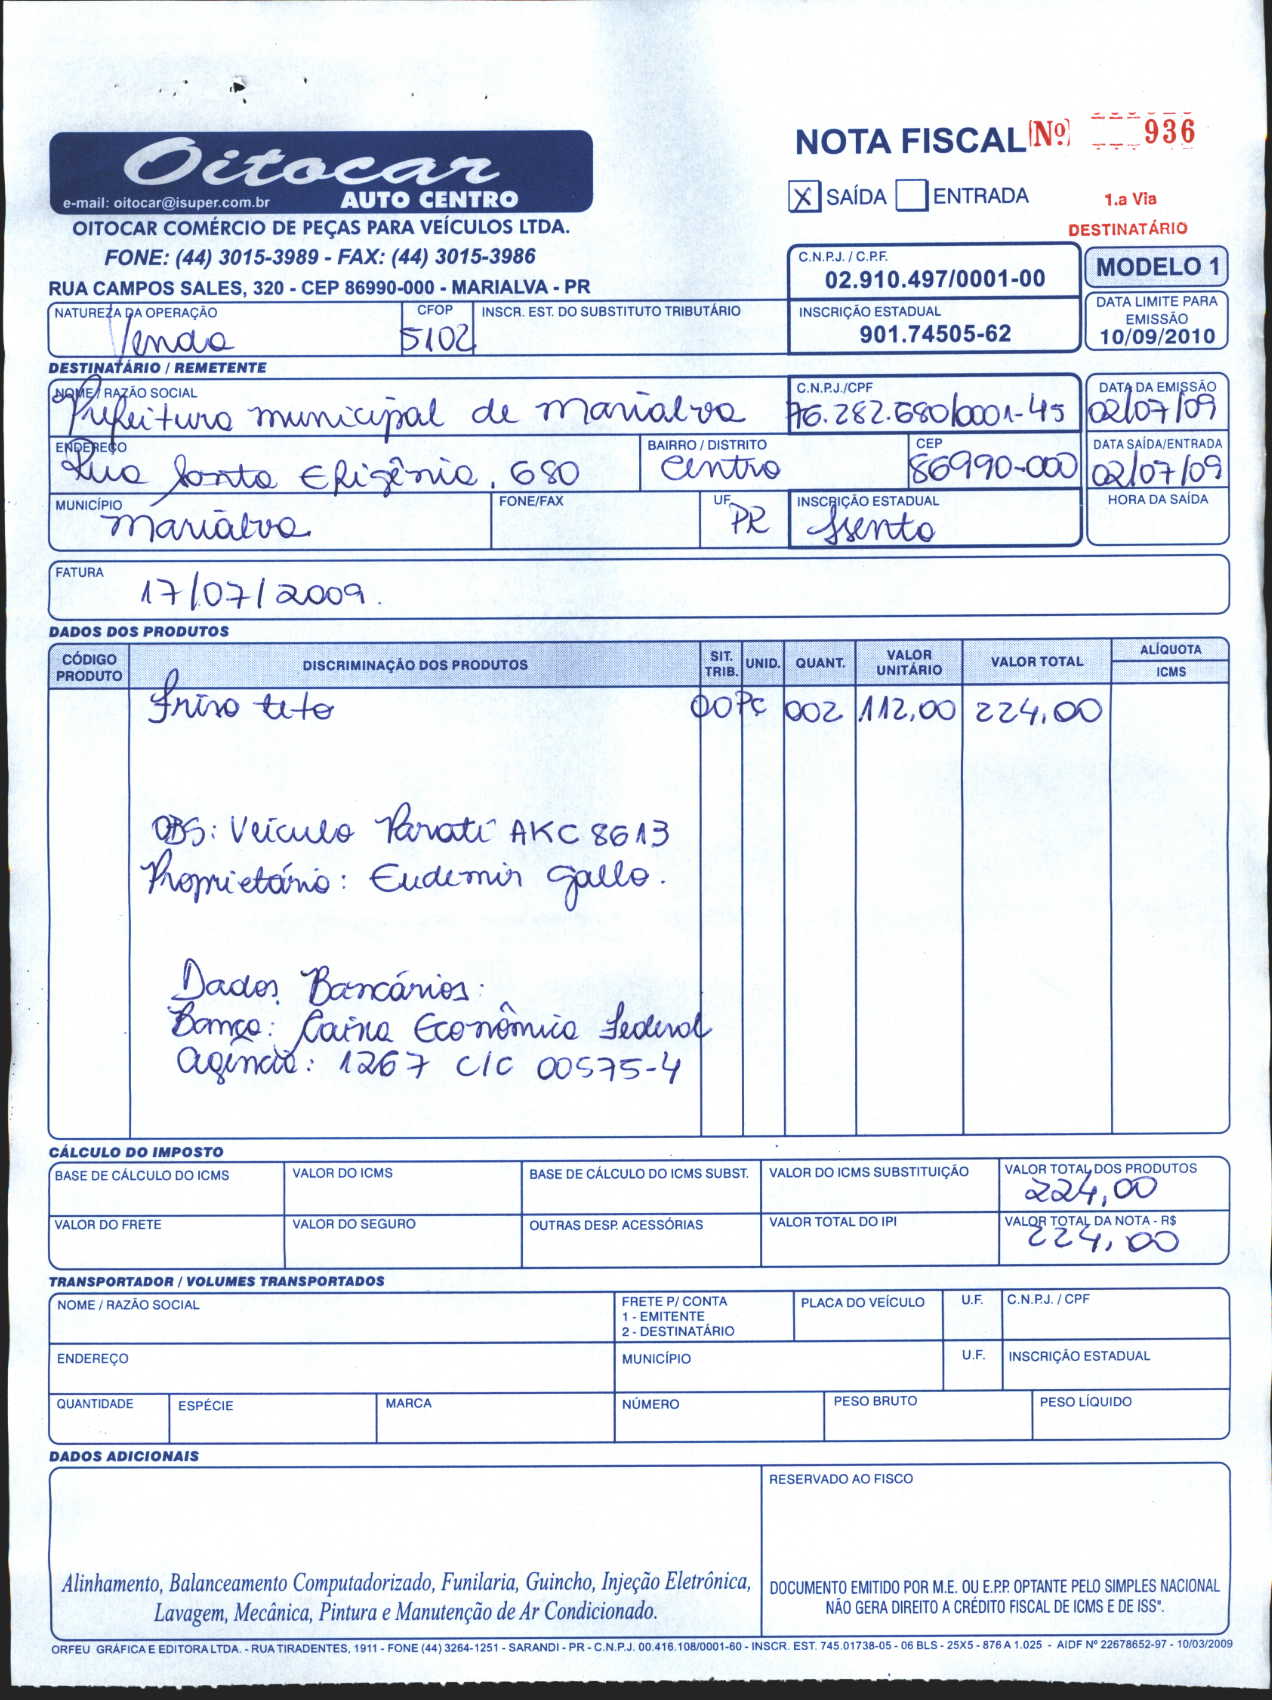 Oitocar
AUTO CENTRO
e-mail: oitocar@isuper.com.br
OITOCAR COMÉRCIO DE PEÇAS PARA VEÍCULOS LTDA.
FONE: (44) 3015-3989 - FAX: (44) 3015-3986
RUA CAMPOS SALES, 320 - CEP 86990-000 - MARIALVA - PR
NOTA FISCAL Nº 936
X SAÍDA ENTRADA
1.a Via
DESTINATÁRIO
C.N.P.J. / C.P.F.
02.910.497/0001-00
MODELO 1
INSCRIÇÃO ESTADUAL
901.74505-62
DATA LIMITE PARA
EMISSÃO
10/09/2010
NATUREZA DA OPERAÇÃO
Venda
CFOP
5102
INSCR. EST. DO SUBSTITUTO TRIBUTÁRIO
DESTINATÁRIO / REMETENTE
NOME / RAZÃO SOCIAL
Prefeitura municipal de Marialva
C.N.P.J./CPF
76.282.680/0001-45
DATA DA EMISSÃO
02/07/09
ENDEREÇO
Rua Santa Efigênia, 680
BAIRRO / DISTRITO
Centro
CEP
86990-000
DATA SAÍDA/ENTRADA
02/07/09
MUNICÍPIO
Marialva
FONE/FAX
UF
PR
INSCRIÇÃO ESTADUAL
Isento
HORA DA SAÍDA
FATURA
17/07/2009.
DADOS DOS PRODUTOS
CÓDIGO PRODUTO DISCRIMINAÇÃO DOS PRODUTOS SIT. TRIB. UNID. QUANT. VALOR UNITÁRIO VALOR TOTAL ALÍQUOTA ICMS
Friso teto 00 PC 002 112,00 224,00
OBS: Veículo Parati AKC 8613
Proprietário: Eudemir Gallo.
Dados Bancários:
Banco: Caixa Econômica Federal
Agência: 1267 C/C 00575-4
CÁLCULO DO IMPOSTO
BASE DE CÁLCULO DO ICMS VALOR DO ICMS BASE DE CÁLCULO DO ICMS SUBST. VALOR DO ICMS SUBSTITUIÇÃO VALOR TOTAL DOS PRODUTOS
224,00
VALOR DO FRETE VALOR DO SEGURO OUTRAS DESP. ACESSÓRIAS VALOR TOTAL DO IPI VALOR TOTAL DA NOTA - R$
224,00
TRANSPORTADOR / VOLUMES TRANSPORTADOS
NOME / RAZÃO SOCIAL
FRETE P/ CONTA
1 - EMITENTE
2 - DESTINATÁRIO
PLACA DO VEÍCULO U.F. C.N.P.J. / CPF
ENDEREÇO MUNICÍPIO U.F. INSCRIÇÃO ESTADUAL
QUANTIDADE ESPÉCIE MARCA NÚMERO PESO BRUTO PESO LÍQUIDO
DADOS ADICIONAIS
RESERVADO AO FISCO
Alinhamento, Balanceamento Computadorizado, Funilaria, Guincho, Injeção Eletrônica,
Lavagem, Mecânica, Pintura e Manutenção de Ar Condicionado.
DOCUMENTO EMITIDO POR M.E. OU E.P.P. OPTANTE PELO SIMPLES NACIONAL
NÃO GERA DIREITO A CRÉDITO FISCAL DE ICMS E DE ISS".
ORFEU GRÁFICA E EDITORA LTDA. - RUA TIRADENTES, 1911 - FONE (44) 3264-1251 - SARANDI - PR - C.N.P.J. 00.416.108/0001-60 - INSCR. EST. 745.01738-05 - 06 BLS - 25X5 - 876 A 1.025 - AIDF Nº 22678652-97 - 10/03/2009